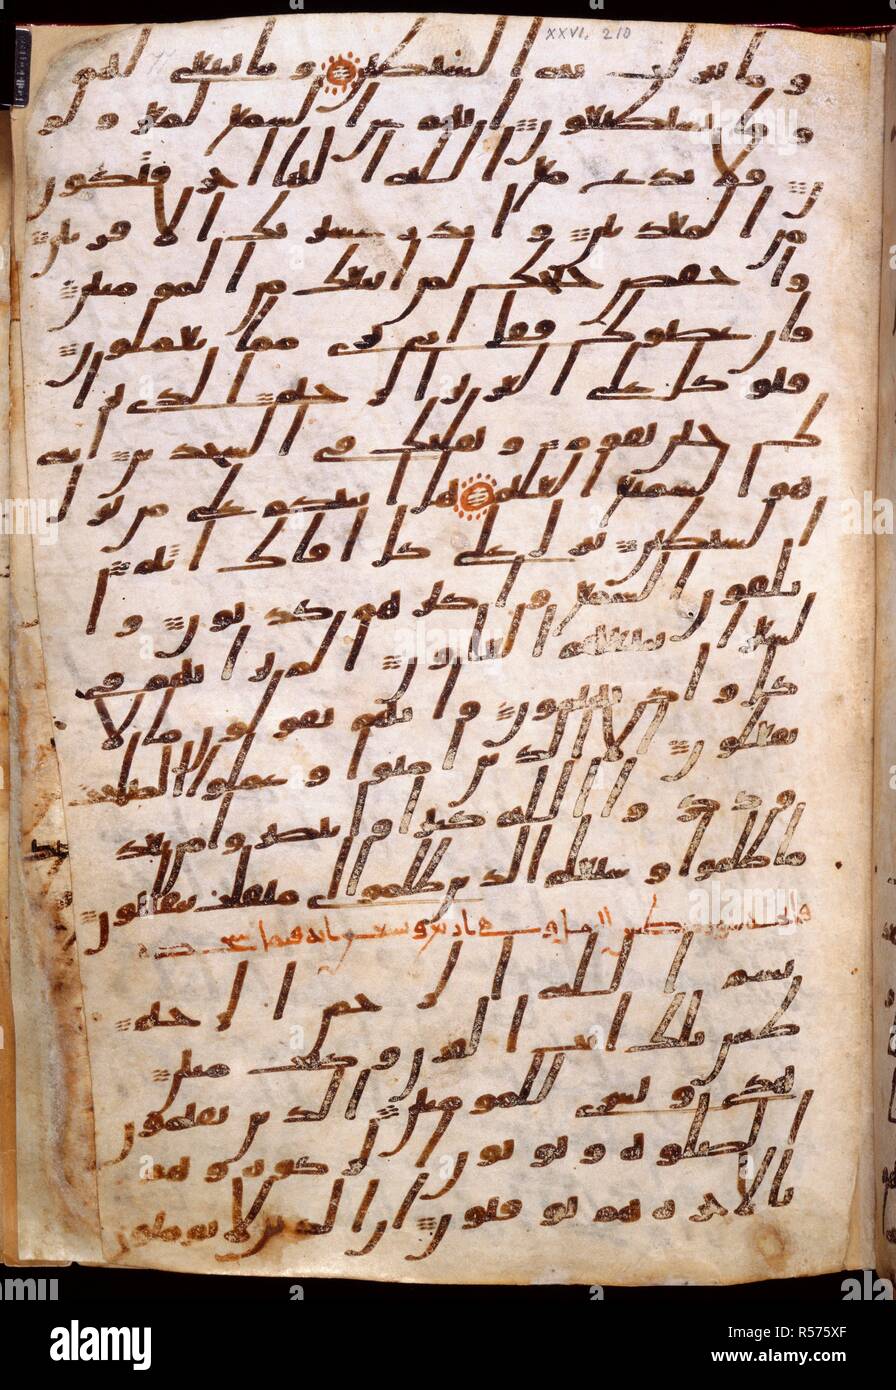 XXVI. 210
وما تنزلت به الشيطين وما ينبغي لهم
وما يستطيعون انهم عن السمع لمعزولو
ن فلا تدع مع الله الها اخر فتكون
من المعذبين وانذر عشيرتك الاقربين
واخفض جنحك لمن اتبعك من المومنين
فان عصوك فقل اني بري مما تعملون
فتوكل على العزيز الرحيم الذي يرا
ك حين تقوم وتقلبك في السجدين انه
هو السميع العليم هل انبيكم على من تنز
ل الشيطين تنزل على كل افاك اثيم
يلقون السمع واكثرهم كذبون وا
لشعرا يتبعهم الغاون الم تر انهم في
كل واد يهيمون وانهم يقولون ما لا
يفعلون الا الذين امنوا وعملوا الصلحت
وذكروا الله كثيرا وانتصروا من بعد
ما ظلموا وسيعلم الذين ظلموا اي منقلب ينقلبون
فاتحة سورة طس
بسم الله الرحمن الرحيم
طس تلك ايت القران وكتب مبين
هدى وبشرى للمومنين الذين يقيمون
الصلوة ويوتون الزكوة وهم
بالاخرة هم يوقنون ان الذين لا يومنون
alamy
Image ID: R575XF
www.alamy.com